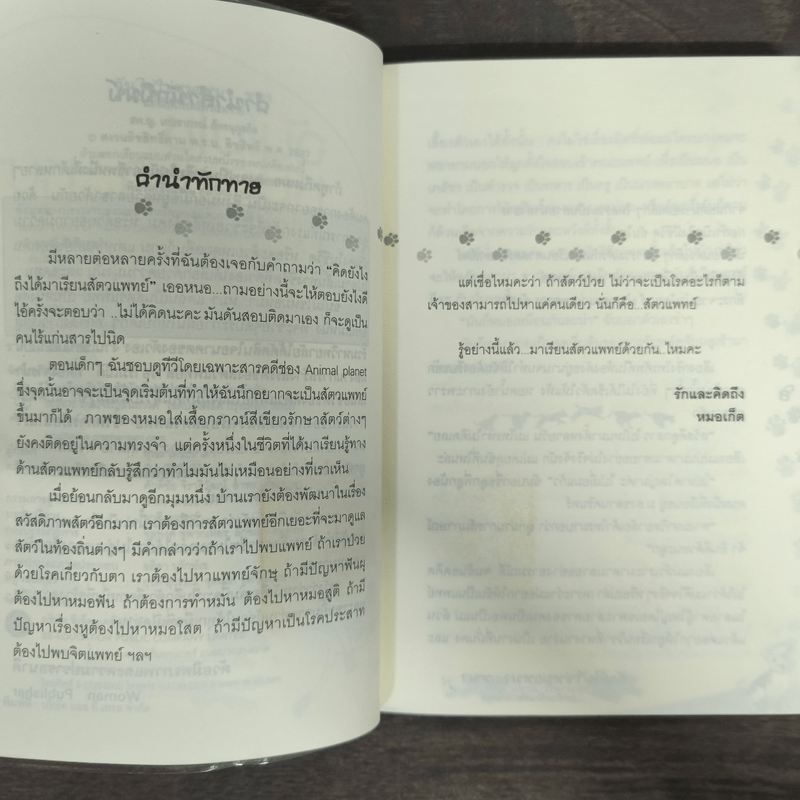 คำนำทักทาย
มีหลายต่อหลายครั้งที่ฉันต้องเจอกับคำถามว่า "คิดยังไง
ถึงได้มาเรียนสัตวแพทย์" เออหนอ...ถามอย่างนี้จะให้ตอบยังไงดี
ไอ้ครั้งจะตอบว่า ..ไม่ได้คิดนะคะ มันดันสอบติดมาเอง ก็จะดูเป็น
คนไร้แก่นสารไปนิด
ตอนเด็กๆ ฉันชอบดูทีวีโดยเฉพาะสารคดีช่อง Animal planet
ซึ่งจุดนั้นอาจจะเป็นจุดเริ่มต้นที่ทำให้ฉันนึกอยากจะเป็นสัตวแพทย์
ขึ้นมาก็ได้ ภาพของหมอใส่เสื้อกราวน์สีเขียวรักษาสัตว์ต่างๆ
ยังคงติดอยู่ในความทรงจำ แต่ครั้งหนึ่งในชีวิตที่ได้มาเรียนรู้ทาง
ด้านสัตวแพทย์กลับรู้สึกว่าทำไมมันไม่เหมือนอย่างที่เราเห็น
เมื่อย้อนกลับมาดูอีกมุมหนึ่ง บ้านเรายังต้องพัฒนาในเรื่อง
สวัสดิภาพสัตว์อีกมาก เราต้องการสัตวแพทย์อีกเยอะที่จะมาดูแล
สัตว์ในท้องถิ่นต่างๆ มีคำกล่าวว่าถ้าเราไปพบแพทย์ ถ้าเราป่วย
ด้วยโรคเกี่ยวกับตา เราต้องไปหาแพทย์จักษุ ถ้ามีปัญหาฟันผุ
ต้องไปหาหมอฟัน ถ้าต้องการทำหมัน ต้องไปหาหมอสูติ ถ้ามี
ปัญหาเรื่องหูต้องไปหาหมอโสต ถ้ามีปัญหาเป็นโรคประสาท
ต้องไปพบจิตแพทย์ ฯลฯ
แต่เชื่อไหมคะว่า ถ้าสัตว์ป่วย ไม่ว่าจะเป็นโรคอะไรก็ตาม
เจ้าของสามารถไปหาแค่คนเดียว นั่นก็คือ...สัตวแพทย์
รู้อย่างนี้แล้ว...มาเรียนสัตวแพทย์ด้วยกัน..ไหมคะ
รักและคิดถึง
หมอเก็ต